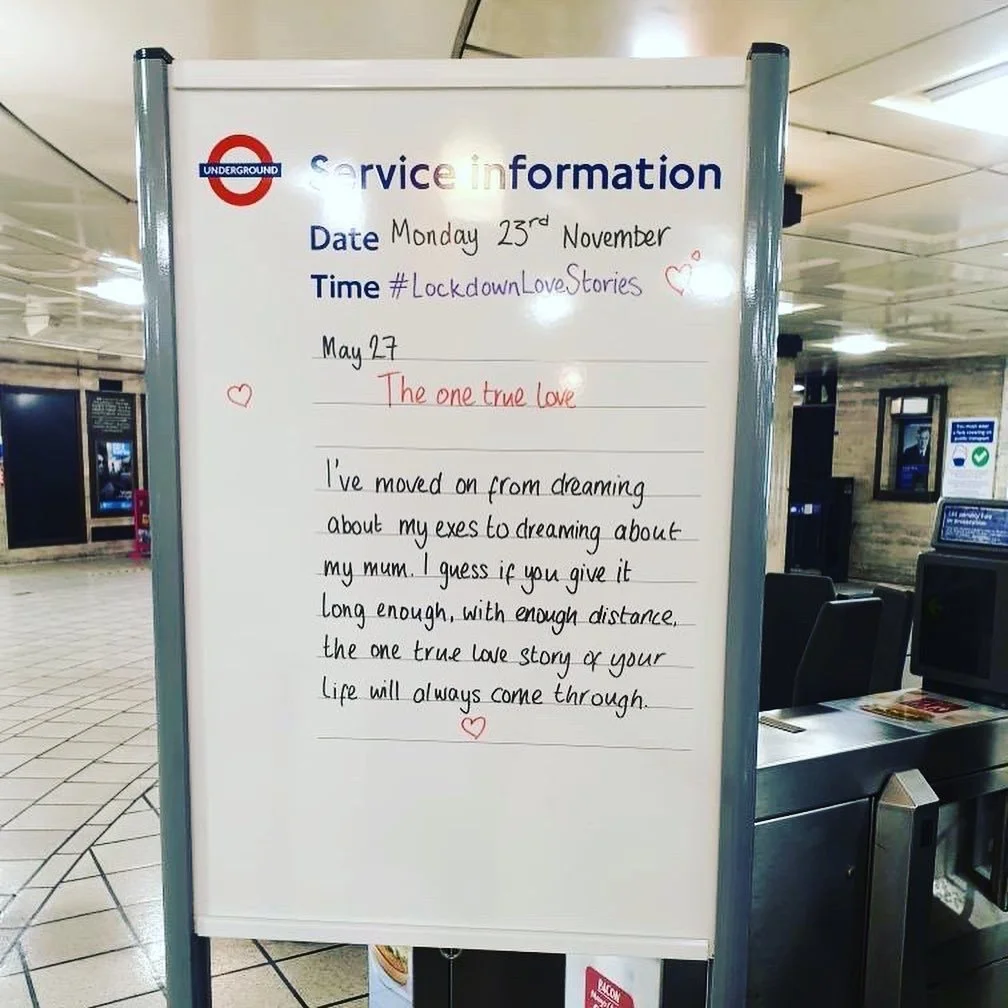 UNDERGROUND
Service information
Date Monday 23rd November
Time #LockdownLoveStories
May 27
The one true love
I've moved on from dreaming
about my exes to dreaming about
my mum. I guess if you give it
long enough, with enough distance,
the one true love story of your
life will always come through.
You must wear
a face covering on
public transport
BACON